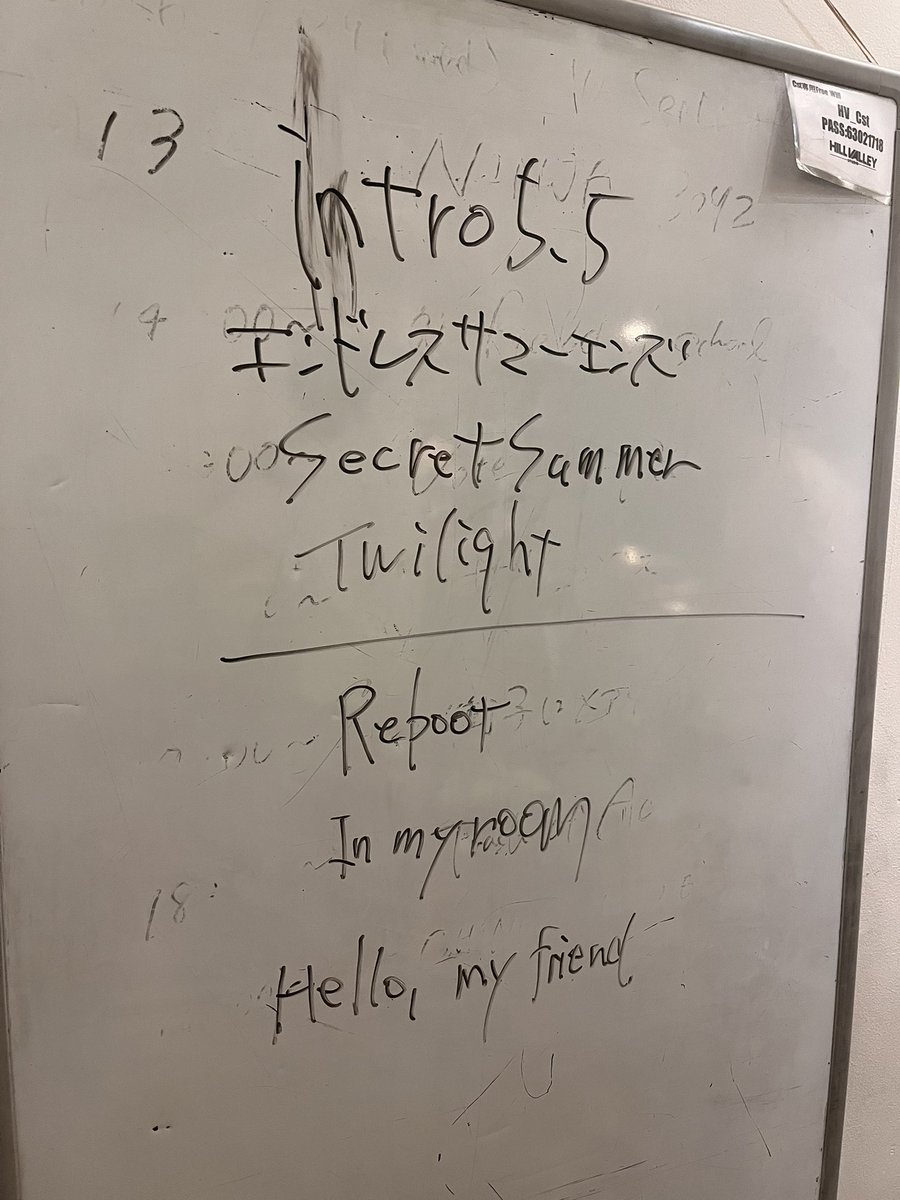 13
Intro 5.5
エンドレスサマーエンズ
Secret Summer
Twilight
Reboot
In my room
Hello, my friend
HV_Cst
PASS:63021718
HILLVALLEY